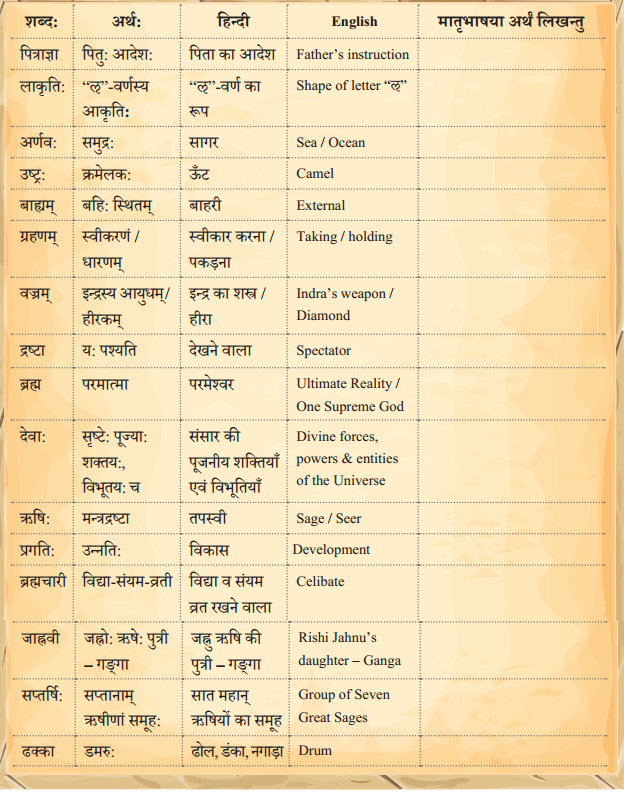 शब्द: अर्थ: हिन्दी English मातृभाषया अर्थं लिखन्तु
पित्राज्ञा पितु: आदेश: पिता का आदेश Father’s instruction
लाकृति: “ऌ”-वर्णस्य “ऌ”-वर्ण का Shape of letter “ऌ”
आकृति: रूप
अर्णव: समुद्र: सागर Sea / Ocean
उष्ट्र: क्रमेलक: ऊँट Camel
बाह्यम् बहि: स्थितम् बाहरी External
ग्रहणम् स्वीकरणं / स्वीकार करना / Taking / holding
धारणम् पकड़ना
वज्रम् इन्द्रस्य आयुधम्/ इन्द्र का शस्त्र / Indra’s weapon /
हीरकम् हीरा Diamond
द्रष्टा य: पश्यति देखने वाला Spectator
ब्रह्म परमात्मा परमेश्वर Ultimate Reality /
One Supreme God
देवा: सृष्टे: पूज्या: संसार की Divine forces,
शक्तय:, पूजनीय शक्तियाँ powers & entities
विभूतय: च एवं विभूतियाँ of the Universe
ऋषि: मन्त्रद्रष्टा तपस्वी Sage / Seer
प्रगति: उन्नति: विकास Development
ब्रह्मचारी विद्या-संयम-व्रती विद्या व संयम Celibate
व्रत रखने वाला
जाह्नवी जह्नो: ऋषे: पुत्री जह्नु ऋषि की Rishi Jahnu’s
– गङ्गा पुत्री – गङ्गा daughter – Ganga
सप्तर्षि: सप्तानाम् सात महान् Group of Seven
ऋषीणां समूह: ऋषियों का समूह Great Sages
ढक्का डमरु: ढोल, डंका, नगाड़ा Drum